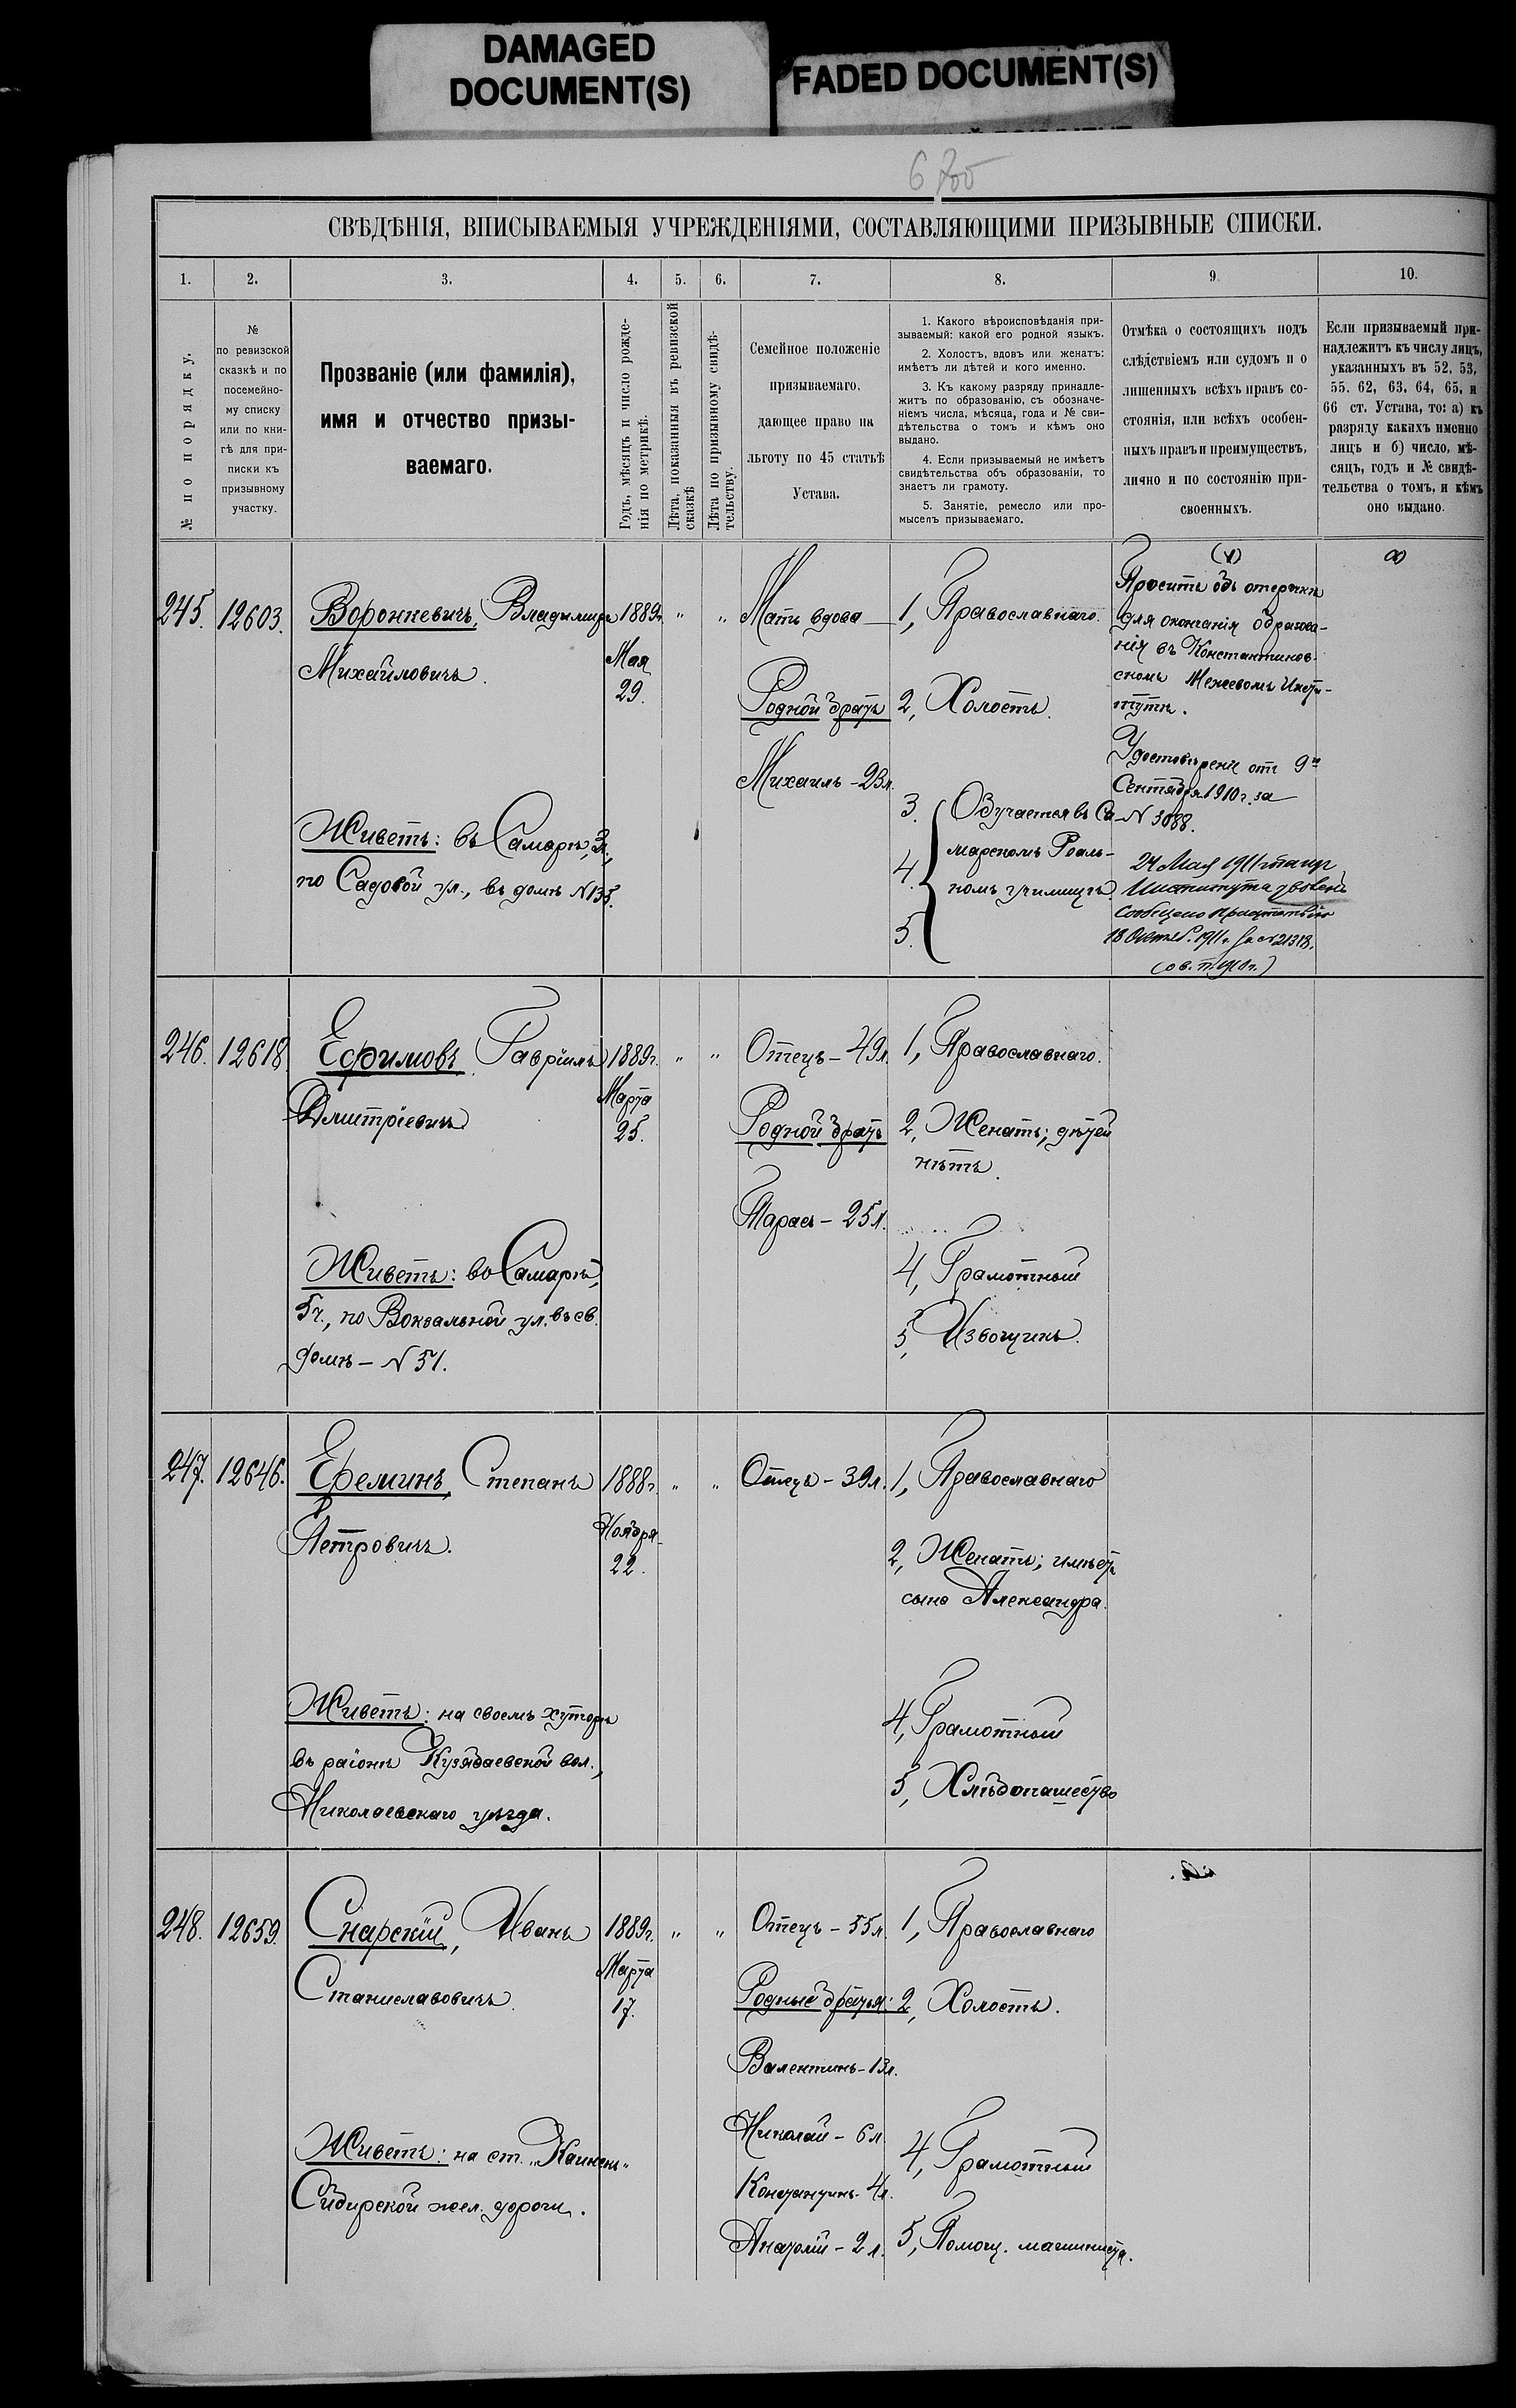 DAMAGED
DOCUMENT(S)
FADED DOCUMENT(S)
СВѢДѢНІЯ, ВПИСЫВАЕМЫЯ УЧРЕЖДЕНІЯМИ, СОСТАВЛЯЮЩИМИ ПРИЗЫВНЫЕ СПИСКИ.
1. 2. 3. 4. 5. 6. 7. 8. 9. 10.
№ по порядку.
№
по ревизской
сказкѣ и по
посемейно-
му списку
или по кни-
гѣ для при-
писки къ
призывному
участку.
Прозваніе (или фамилія),
имя и отчество призы-
ваемаго.
Годъ, мѣсяцъ и число рожде-
нія по метрикѣ.
Лѣта, показанныя въ ревизской
сказкѣ
Лѣта по призывному свидѣ-
тельству.
Семейное положеніе
призываемаго,
дающее право на
льготу по 45 статьѣ
Устава.
1. Какого вѣроисповѣданія при-
зываемый: какой его родной языкъ.
2. Холостъ, вдовъ или женатъ:
имѣетъ ли дѣтей и кого именно.
3. Къ какому разряду принадле-
житъ по образованію, съ обозначе-
ніемъ числа, мѣсяца, года и № сви-
дѣтельства о томъ и кѣмъ оно
выдано.
4. Если призываемый не имѣетъ
свидѣтельства объ образованіи, то
знаетъ ли грамоту.
5. Занятіе, ремесло или про-
мыселъ призываемаго.
Отмѣка о состоящихъ подъ
слѣдствіемъ или судомъ и о
лишенныхъ всѣхъ правъ со-
стоянія, или всѣхъ особен-
ныхъ правъ и преимуществъ,
лично и по состоянію при-
своенныхъ.
Если призываемый при-
надлежитъ къ числу лицъ,
указанныхъ въ 52, 53,
55. 62, 63, 64, 65, и
66 ст. Устава, то: а) къ
разряду какихъ именно
лицъ и б) число, мѣ-
сяцъ, годъ и № свидѣ-
тельства о томъ, и кѣмъ
оно выдано.
245. 12603.
Воронкевичъ, Владимиръ
Михайловичъ.
Живетъ: въ Самарѣ, 3ч.,
по Садовой ул., въ домѣ N135.
1889г.
Мая
29.
" "
Мать вдова —
Родной братъ
Михаилъ - 23л.
1, Православнаго.
2, Холостъ.
3.
4.
5.
Обучается въ Са-
марскомъ Реаль-
номъ училищѣ.
(v)
Проситъ объ отсрочкѣ
для окончанія образова-
нія въ Константинов-
скомъ Межевомъ Инсти-
тутѣ.
Удостовѣреніе отъ 9го
Сентября 1910г. за
N 3088.
24 Мая 1911
Института
18 1911г. за N 21313.
246. 12618
Ефимовъ, Гавріилъ
Дмитріевичъ
Живетъ: во Самарѣ,
5ч., по Вокзальной ул. въ св.
домѣ - N 51.
1889г.
Марта
25.
" "
Отецъ - 49л.
Родной братъ
Тарасъ - 25л.
1, Православнаго.
2, Женатъ; дѣтей
нѣтъ.
4, Грамотный
5, Извощикъ.
247. 12646.
Ереминъ, Степанъ
Петровичъ.
Живетъ: на своемъ хуторѣ
въ раіонѣ Кузябаевской вол.,
Николаевскаго уѣзда.
1888г.
Ноября
22.
" "
Отецъ - 39л.
1, Православнаго
2, Женатъ; имѣетъ
сына Александра.
4, Грамотный
5, Хлѣбопашество
248. 12659.
Снарскій, Иванъ
Станиславовичъ.
Живетъ: на ст. "Каинскъ"
Сибирской жел. дороги.
1889г.
Марта
17.
" "
Отецъ - 55л.
Родные братья:
Валентинъ - 13л.
Николай - 6л.
Константинъ - 4л.
Анатолій - 2л.
1, Православнаго
2, Холостъ.
4, Грамотный
5, Помощ. машиниста.